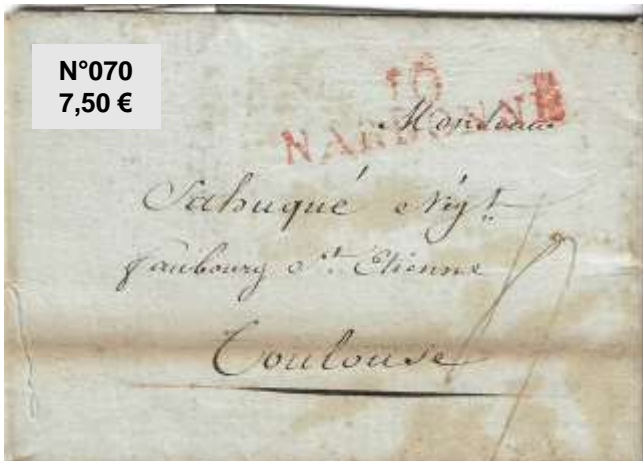 N°070
7,50 €
16
NARBONNE
Monsieur
Sahuqué Nég.t
faubourg St. Etienne
Toulouse